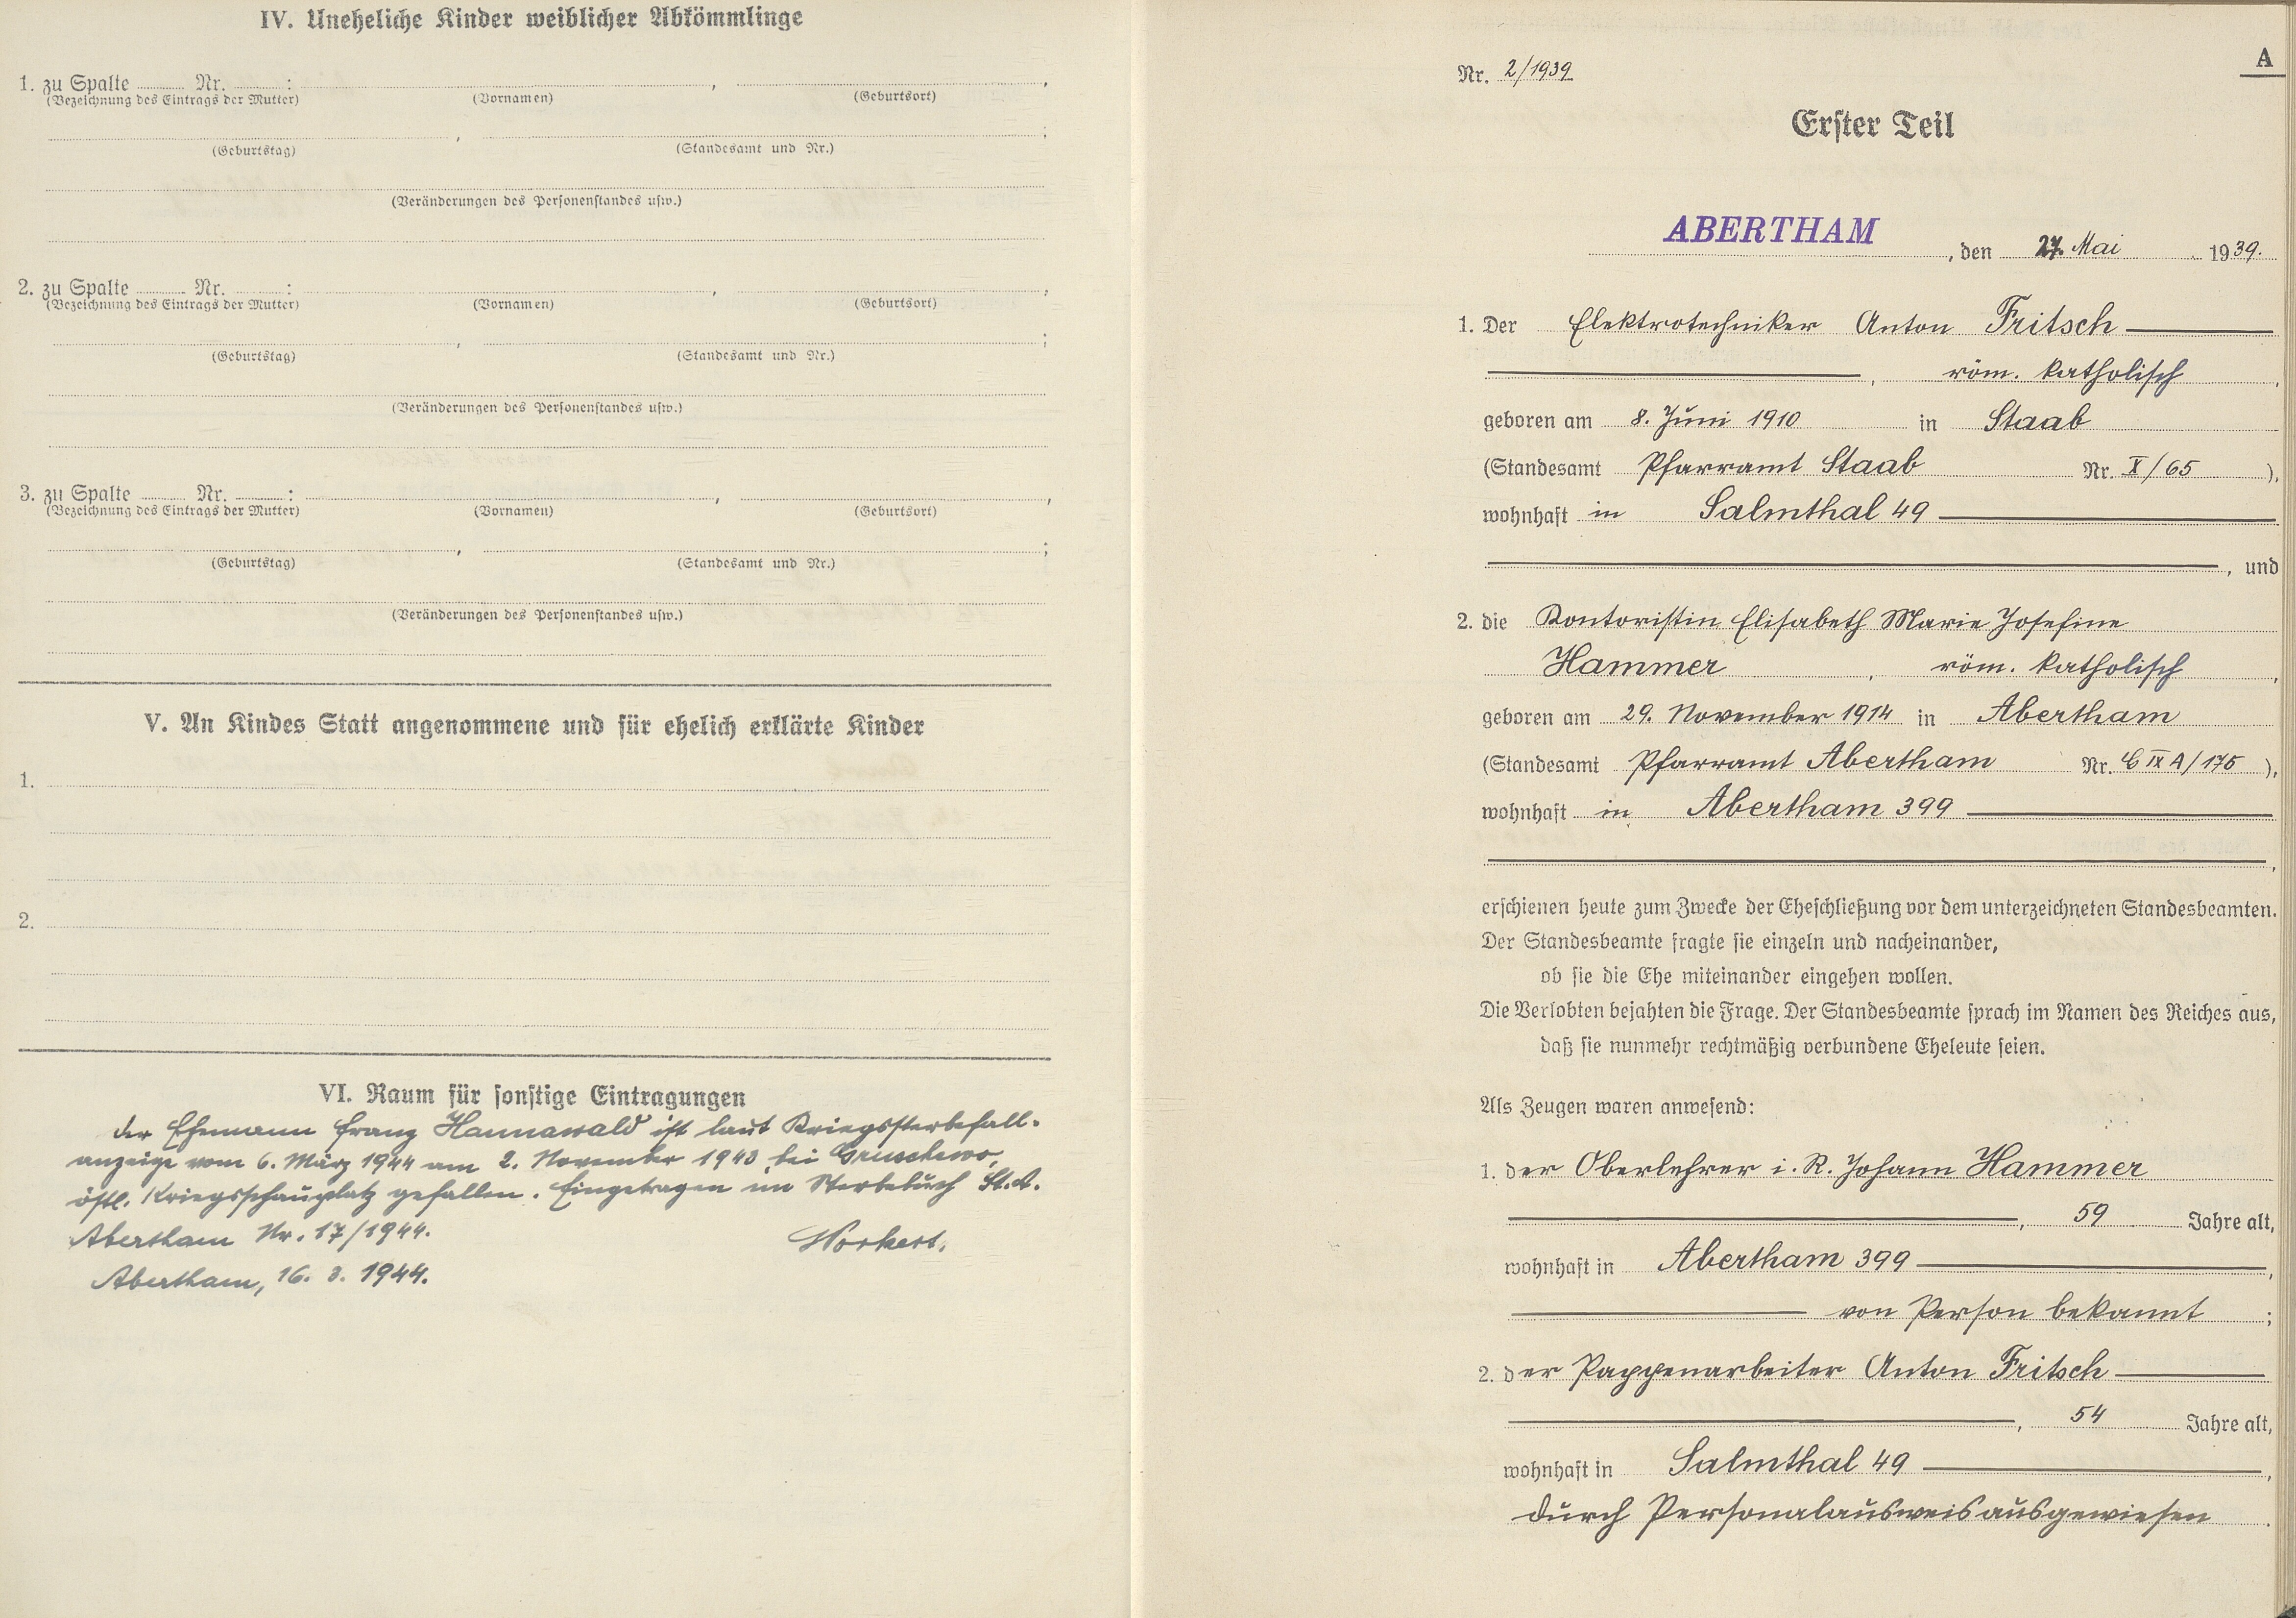 IV. Uneheliche Kinder weiblicher Abkömmlinge
1. zu Spalte Nr. : , ,
(Bezeichnung des Eintrags der Mutter) (Vornamen) (Geburtsort)
, ;
(Geburtstag) (Standesamt und Nr.)
(Veränderungen des Personenstandes usw.)
2. zu Spalte Nr. : , ,
(Bezeichnung des Eintrags der Mutter) (Vornamen) (Geburtsort)
, ;
(Geburtstag) (Standesamt und Nr.)
(Veränderungen des Personenstandes usw.)
3. zu Spalte Nr. : , ,
(Bezeichnung des Eintrags der Mutter) (Vornamen) (Geburtsort)
, ;
(Geburtstag) (Standesamt und Nr.)
(Veränderungen des Personenstandes usw.)
V. An Kindes Statt angenommene und für ehelich erklärte Kinder
1.
2.
VI. Raum für sonstige Eintragungen
der Ehemann Franz Hannawald ist laut Kriegssterbefall-
anzeige vom 6. März 1944 am 2. November 1943 bei Gruschewo,
östl. Kriegsschauplatz gefallen. Eingetragen im Sterbebuch St.A.
Abertham Nr. 17/1944.
Abertham, 16. 3. 1944.
A
Nr. 2/1939
Erster Teil
ABERTHAM, den 27. Mai 1939.
1. Der Elektrotechniker Anton Fritsch
, röm. katholisch,
geboren am 8. Juni 1910 in Staab
(Standesamt Pfarramt Staab Nr. X/65),
wohnhaft in Salmthal 49
, und
2. die Kontoristin Elisabeth Marie Josefine
Hammer, röm. katholisch,
geboren am 29. November 1914 in Abertham
(Standesamt Pfarramt Abertham Nr. IX A/175),
wohnhaft in Abertham 399
,
erschienen heute zum Zwecke der Eheschließung vor dem unterzeichneten Standesbeamten.
Der Standesbeamte fragte sie einzeln und nacheinander,
ob sie die Ehe miteinander eingehen wollen.
Die Verlobten bejahten die Frage. Der Standesbeamte sprach im Namen des Reiches aus,
daß sie nunmehr rechtmäßig verbundene Eheleute seien.
Als Zeugen waren anwesend:
1. der Oberlehrer i. R. Johann Hammer
, 59 Jahre alt,
wohnhaft in Abertham 399,
von Person bekannt;
2. der Pappenarbeiter Anton Fritsch
, 54 Jahre alt,
wohnhaft in Salmthal 49,
durch Personalausweis ausgewiesen.